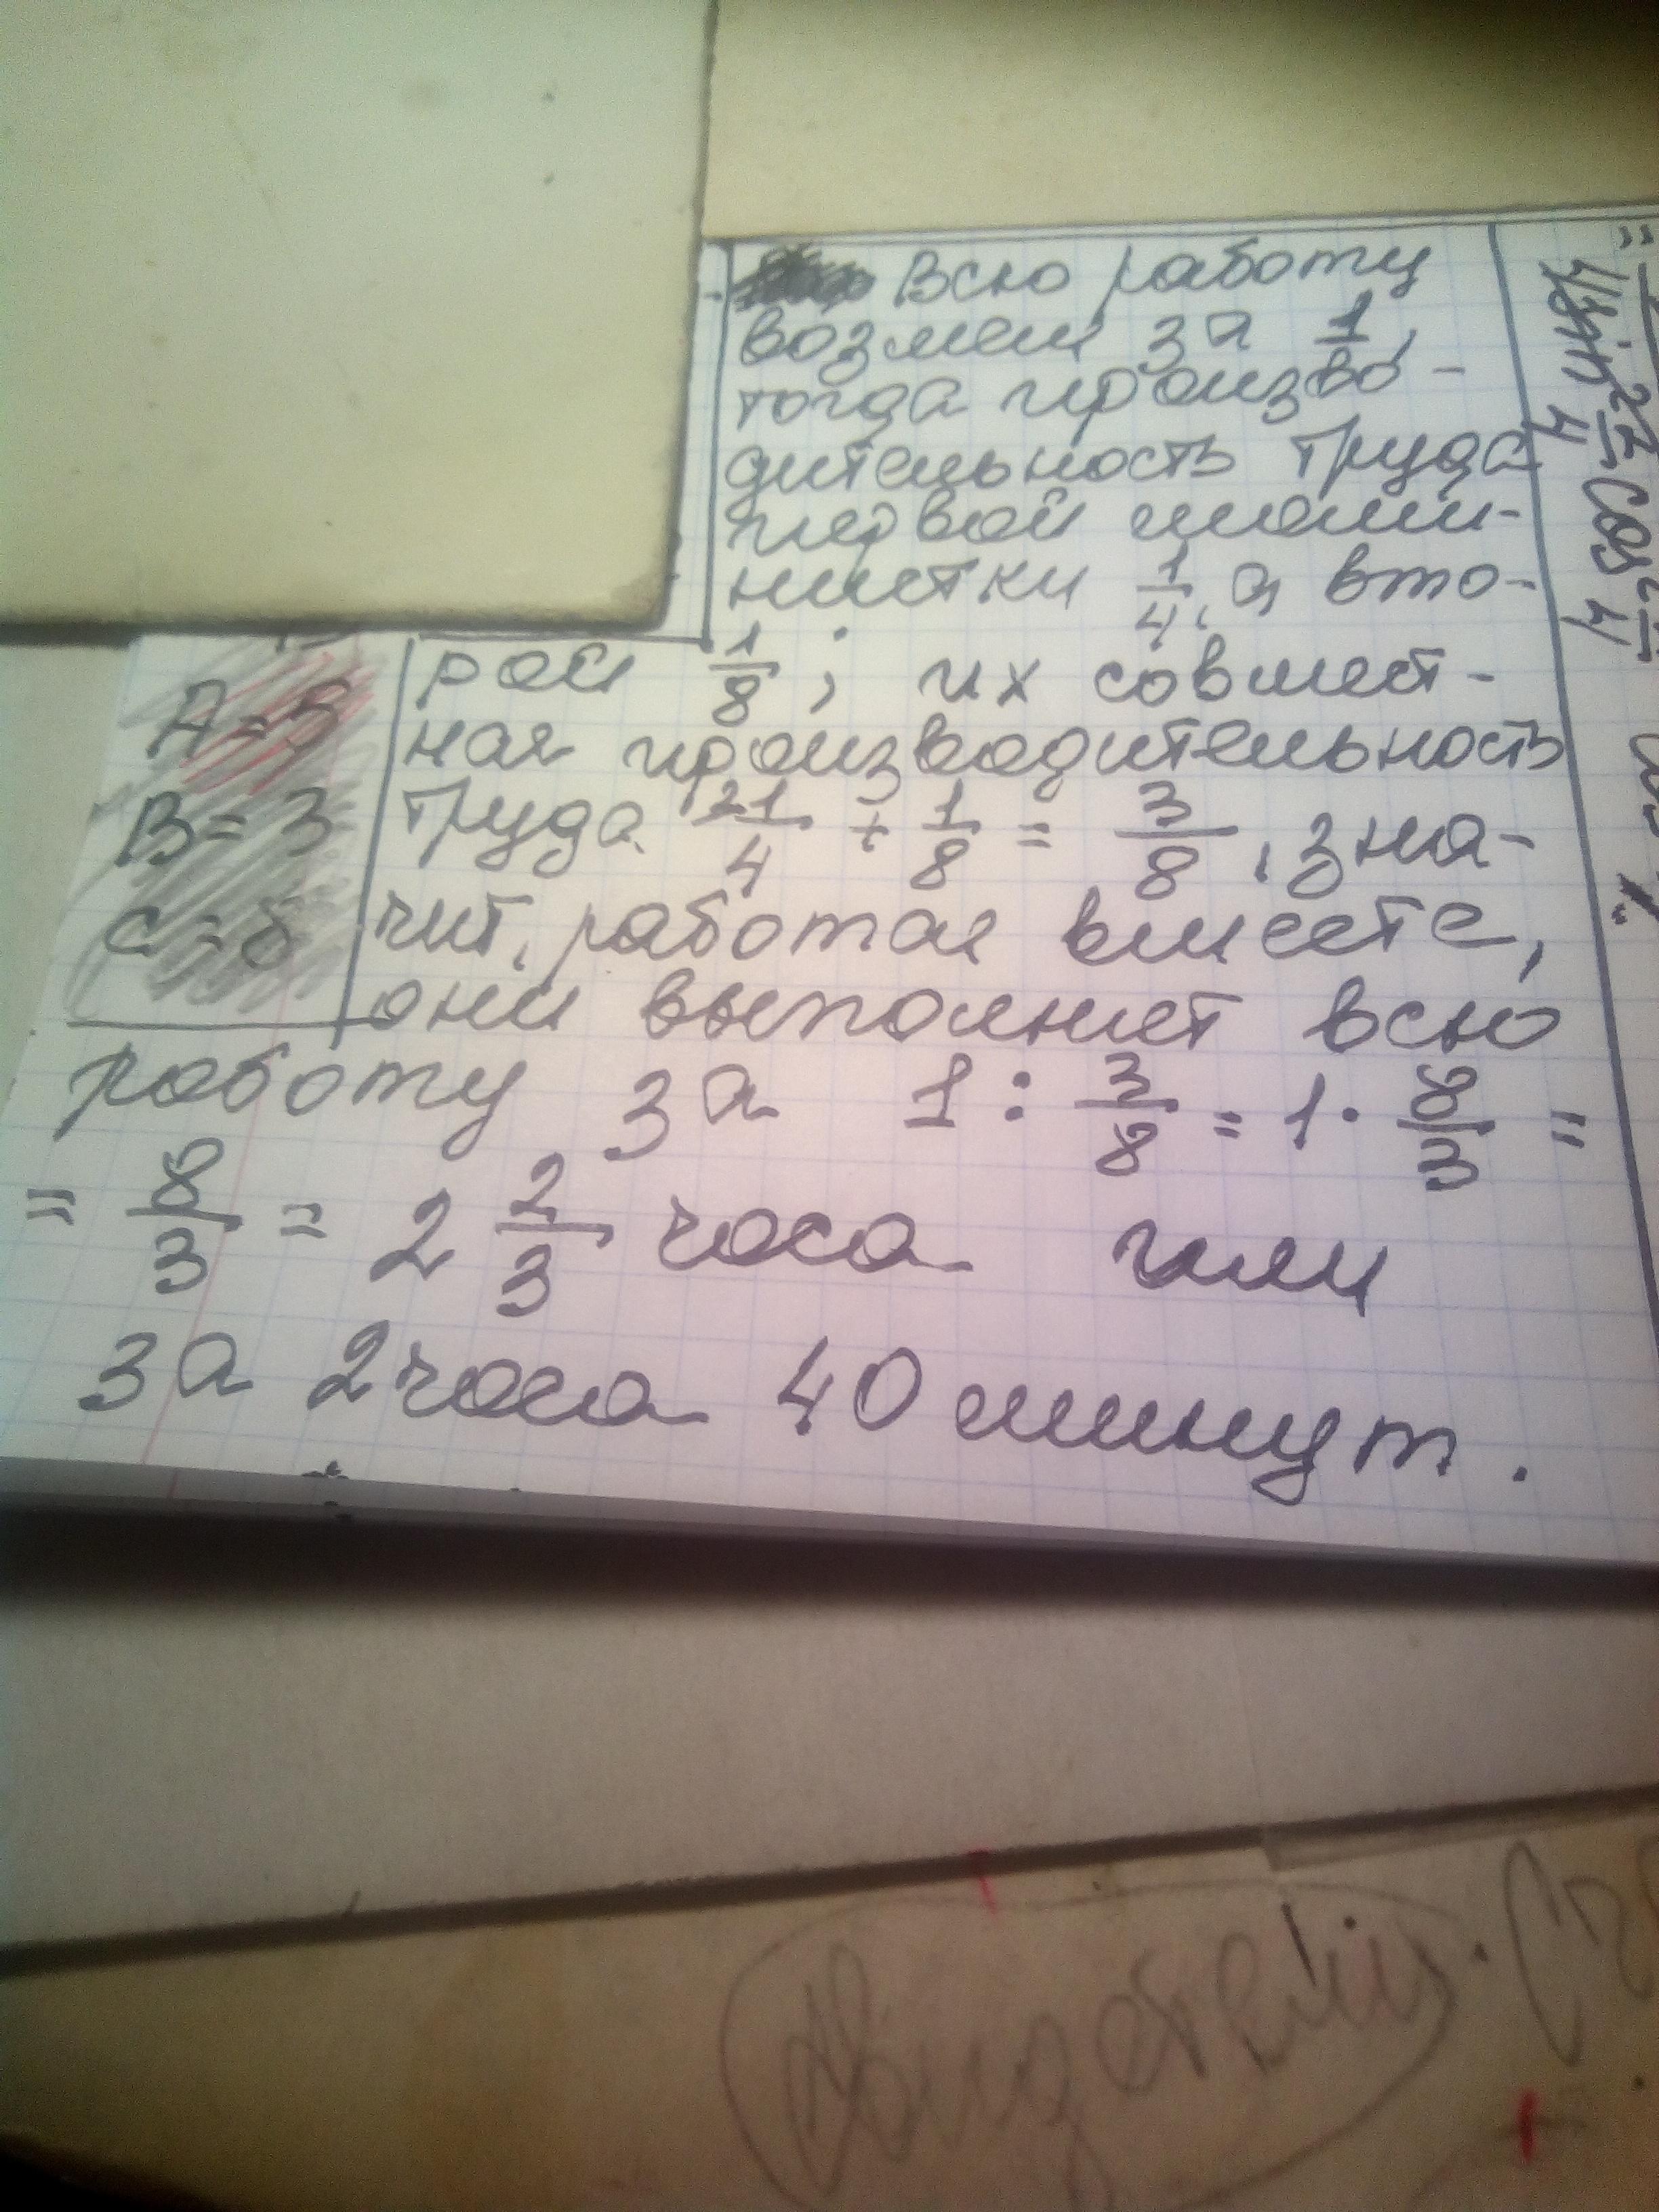 Всю работу
возмем за 1,
тогда произво-
дительность труда
первой маши-
нистки 1/4, а вто-
рой 1/8; их совмест-
ная производительность
труда 21/4 + 1/8 = 3/8, зна-
чит, работая вместе,
они выполнят всю
работу за 1 : 3/8 = 1 · 8/3 =
= 8/3 = 2 2/3 часа или
за 2 часа 40 минут.
A = 5
B = 3
C = 8